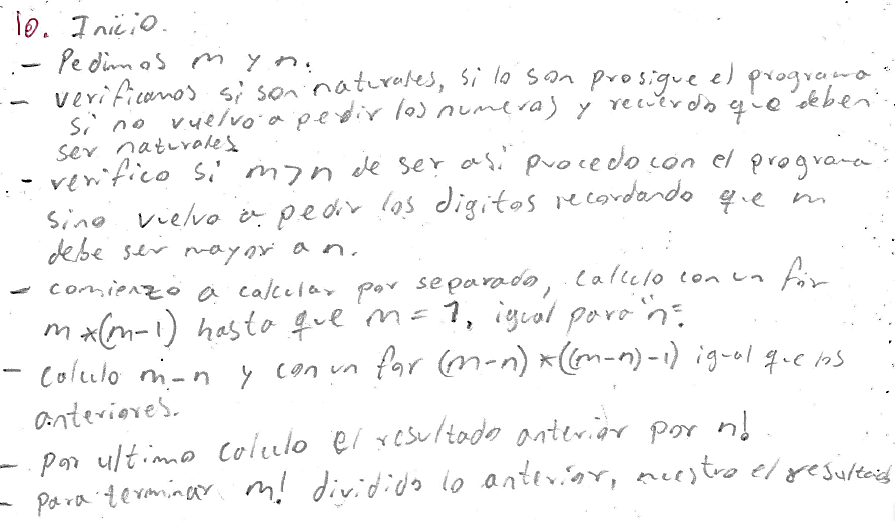 10. Inicio.
- Pedimos m y n.
- verificamos si son naturales, si lo son prosigue el programa
si no vuelvo a pedir los numeros y recuerdo que deben
ser naturales
- verifico si m>n de ser asi procedo con el programa
sino vuelvo a pedir los digitos recordando que m
debe ser mayor a n.
- comienzo a calcular por separado, calculo con un for
m*(m-1) hasta que m = 1, igual para "n".
- Calculo m-n y con un for (m-n)*((m-n)-1) igual que los
anteriores.
- por ultimo calculo el resultado anterior por n!
- para terminar m! dividido lo anterior, muestro el resultado